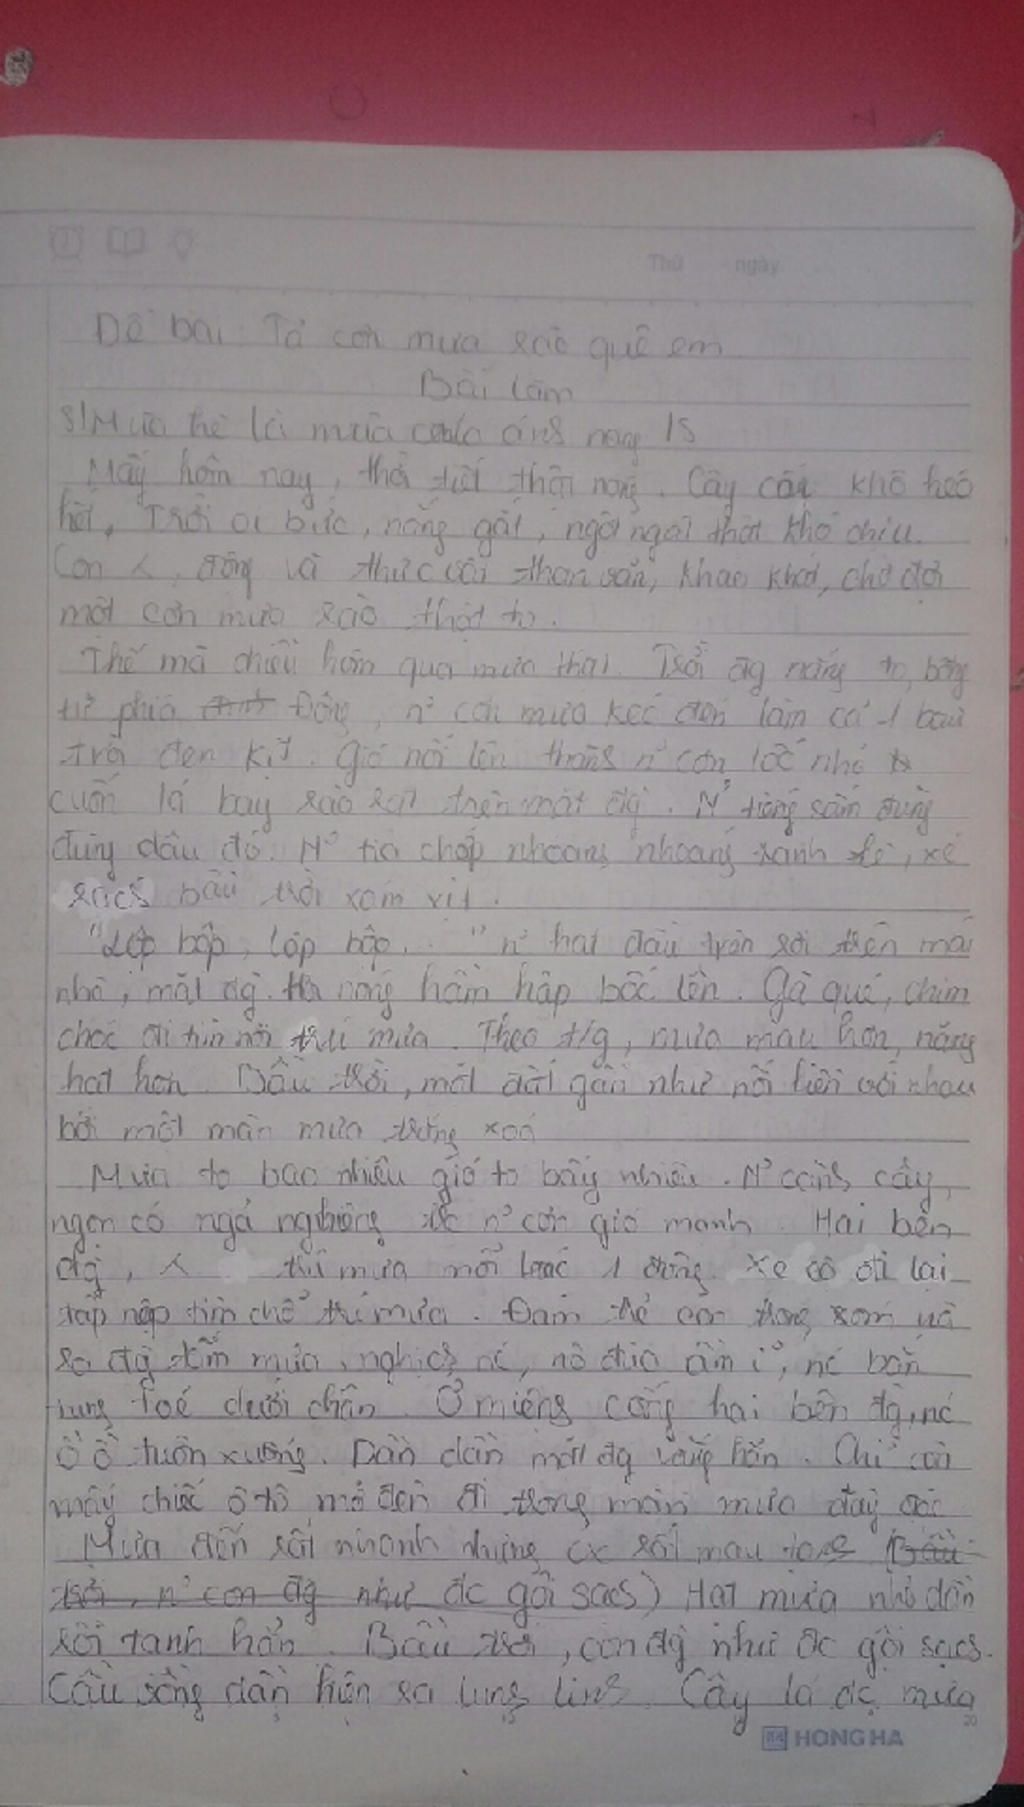 Thứ ngày
Đề bài: Tả cơn mưa rào quê em
Bài làm
Mùa hè là mùa của ánh nắng
Mấy hôm nay, thời tiết thật nóng. Cây cối khô héo
hết, Trời oi bức, nắng gắt, ngột ngạt thật khó chịu.
Con , động và thực vật than vãn, khao khát, chờ đợi
một cơn mưa rào thật to.
Thế mà chiều hôm qua mưa thật. Trời đg nắng to, bỗng
từ phía Đông, n~ cơn mưa kéo đến làm cả 1 bầu
trời đen kịt. Gió nổi lên thành n~ cơn lốc nhỏ
cuốn lá bay rào rạt trên mặt đg. N~ tiếng sấm đùng
đùng đâu đó. N~ tia chớp nhoang nhoáng xanh lè, xé
rạch bầu trời xám xịt.
"Lộp bộp, lộp bộp.." n~ hạt đầu tròn rơi trên mái
nhà, mặt đg. Hơi nóng hầm hập bốc lên. Gà qué, chim
chóc đi tìm nơi trú mưa. Theo t/g, mưa mau hơn, nặng
hạt hơn. Bầu trời, mặt đất gần như nối liền với nhau
bởi một màn mưa trắng xoá
Mưa to bao nhiêu gió to bấy nhiêu. N~ cành cây,
ngọn cỏ ngả nghiêng n~ cơn gió mạnh. Hai bên
đg, trú mưa mỗi 1 đông. Xe cộ đi lại
tấp nập tìm chỗ trú mưa. Đám trẻ con trong xóm
ra đg tắm mưa, nghịch nc, nô đùa ầm ĩ, nc bắn
tung toé dưới chân. Ở miệng cống hai bên đg, nc
ồ ồ tuôn xuống. Dần dần mặt đg vắng hẳn. Chỉ còn
mấy chiếc ô tô mở đèn đi trong màn mưa dày đặc
Mưa đến rất nhanh nhưng cx rất mau (Bầu
trời, n~ con đg như đc gội sạch) Hạt mưa nhỏ dần
rồi tạnh hẳn. Bầu trời, con đg như đc gội sạch.
Cầu vồng dần hiện ra lung linh. Cây lá đc mưa
20
HONG HA